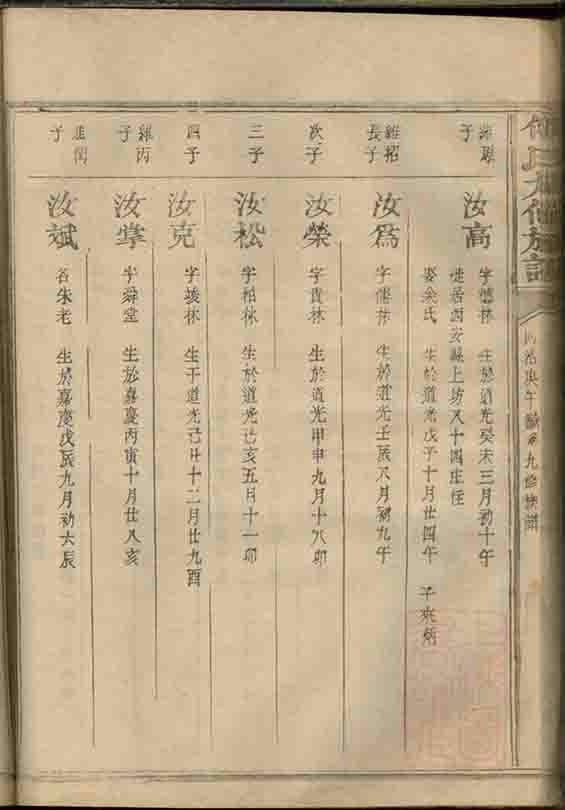 同治庚午
九修族譜
子
汝高
字 林 生於道光癸未三月初十午
徙居西安縣上坊又十四庄住
娶余氏 生於道光戊子十月廿四午 子來炳
維招
長子
汝為
字儒林 生於道光壬辰八月初九午
次子
汝榮
字貴林 生於道光甲申九月十八卯
三子
汝松
字柏林 生於道光己亥五月十一卯
四子
汝克
字 林 生于道光己丑十二月廿九酉
維丙
子
汝掌
字舜堂 生於嘉慶丙寅十月廿八亥
子
汝斌
名朱老 生於嘉慶戊辰九月初六辰